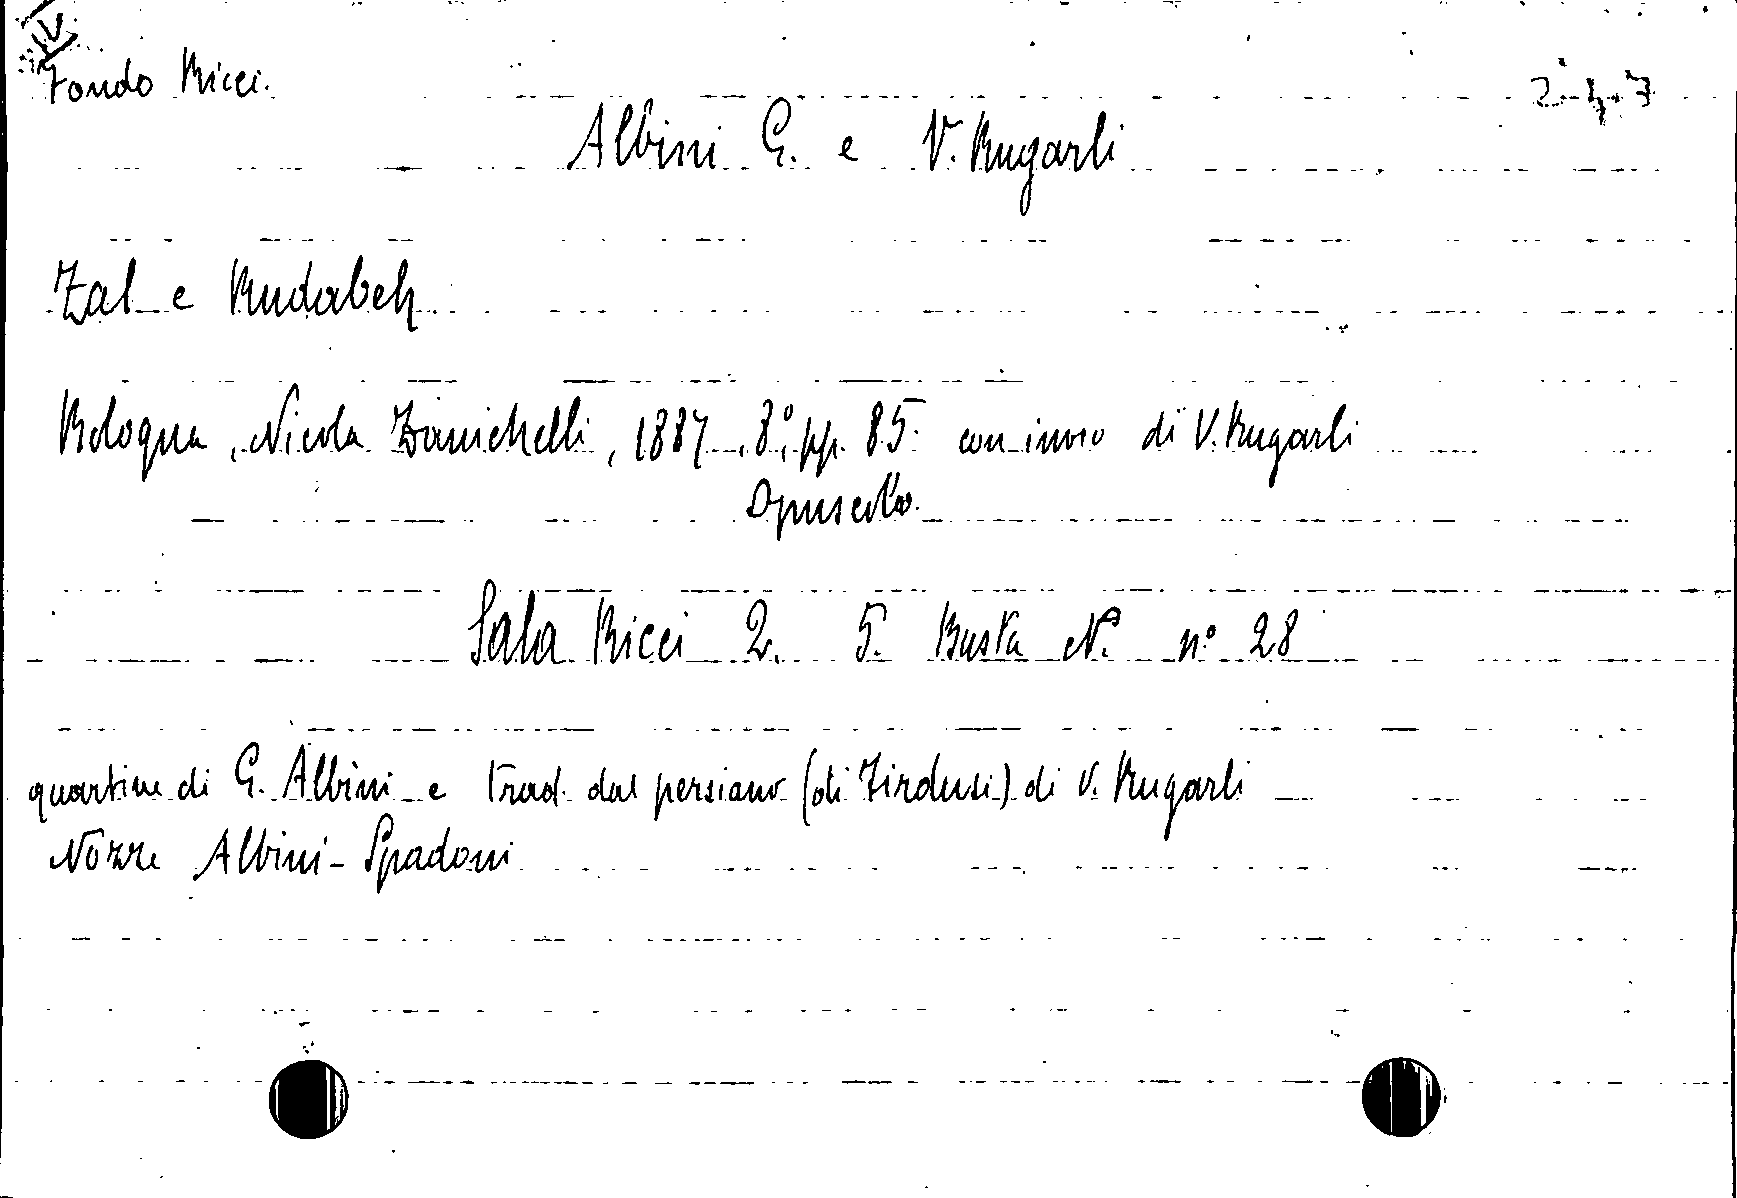 IV
Fondo Ricci.
2-4-7
Albini G. e V. Rugarli
Zal e Rudabeh
Bologna, Nicola Zanichelli, 1887, 8°, pp. 85. con invio di V. Rugarli
Opuscolo.
Sala Ricci 2. 5. Busta N. n° 28
quartine di G. Albini e trad. dal persiano (di Firdusi) di V. Rugarli
Nozze Albini-Spadoni